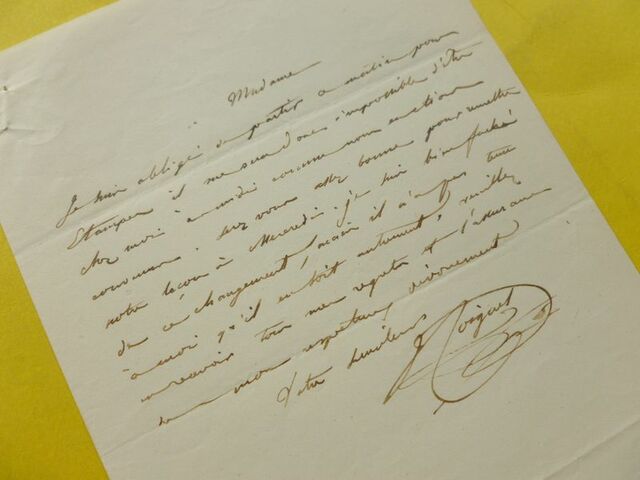 Madame
Je suis obligé de partir ce matin pour
Etampes il me sera donc impossible d'être
chez moi à midi comme nous en étions
convenus. serez vous assez bonne pour remettre
notre leçon à Mercredi. je suis bien fâché
de ce changement, mais il n'a pas tenu
à moi qu'il en soit autrement, veuillez
recevoir tous mes regrets et l'assurance
de mon respectueux dévouement
Votre serviteur